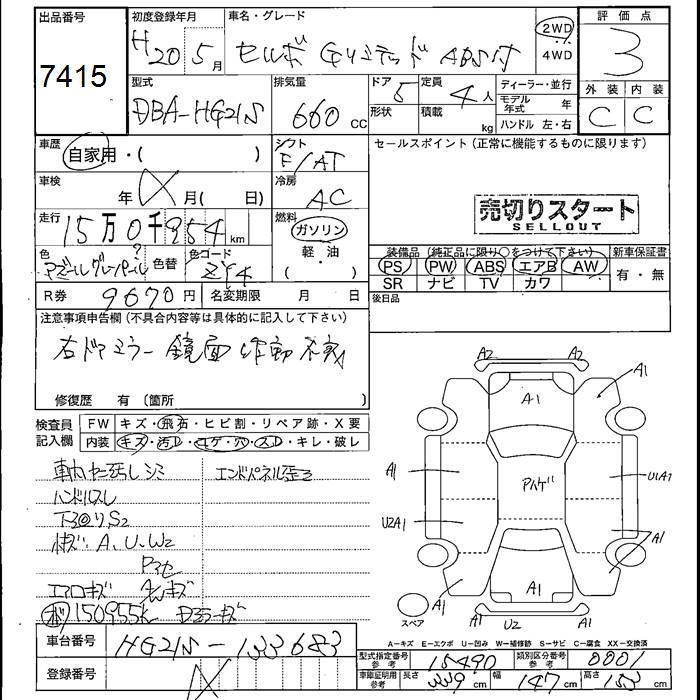 出品番号 初度登録年月 車名・グレード 評価点
7415 H20 5月 セルボ Gリミテッド ABS付 2WD 4WD 3
型式 排気量 ドア 形状 定員 積載 ディーラー・並行 外装 内装
DBA-HG21S 660cc 5 4人 kg モデル年式 年 ハンドル 左・右 C C
車歴 シフト セールスポイント(正常に機能するものに限ります)
自家用・( ) F/AT
車検 年 月( 日) 冷房 AC
売切りスタート
SELLOUT
走行 15万0千954km 燃料 ガソリン
軽・油
( )
色 色替 色コード ZY4
装備品(純正品に限り○をつけて下さい) 新車保証書
PS PW ABS エアB AW 有・無
SR ナビ TV カワ
R券 9670円 名変期限 月 日 後日品
注意事項申告欄(不具合内容等は具体的に記入して下さい)
右ドアミラー鏡面作動不良
修復歴 有(箇所 )
検査員記入欄 FW キズ・飛石・ヒビ割・リペア跡・X要
内装 キズ・汚レ・コゲ・穴・スレ・キレ・破レ
車内ヤニ汚レシミ エンドパネル歪ミ
ハンドルスレ
下回りS2
小キズ、A、U、W2
エアロキズ
150955K ドラキズ
A2 A2
A1 A1
A1 パハゲ U1A1
U2A1 A1
A1 A1 A1
U2
スペア
A-キズ E-エクボ U-凹み W-補修跡 S-サビ C-腐食 XX-交換済
車台番号 HG21S-133683
登録番号
型式指定番号 参考 15490 類別区分番号 参考 0001
車庫証明用 参考 長さ 339cm 幅 147cm 高さ 153cm